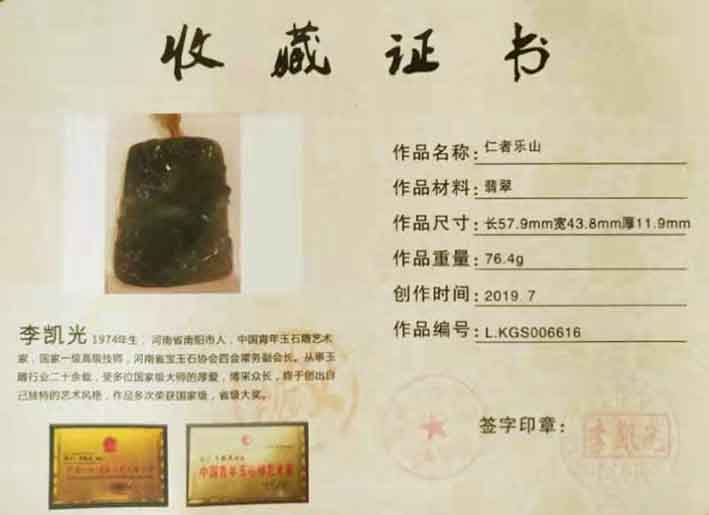 收藏证书
作品名称: 仁者乐山
作品材料: 翡翠
作品尺寸: 长57.9mm宽43.8mm厚11.9mm
作品重量: 76.4g
创作时间: 2019.7
作品编号: L.KGS006616
李凯光 1974年生, 河南省南阳市人, 中国青年玉石雕艺术
家, 国家一级高级技师, 河南省宝玉石协会四会常务副会长。从事玉
雕行业二十余载, 受多位国家级大师的厚爱, 博采众长, 终于创出自
己独特的艺术风格, 作品多次荣获国家级, 省级大奖。
中国青年玉石雕艺术家
签字印章:
李凯光